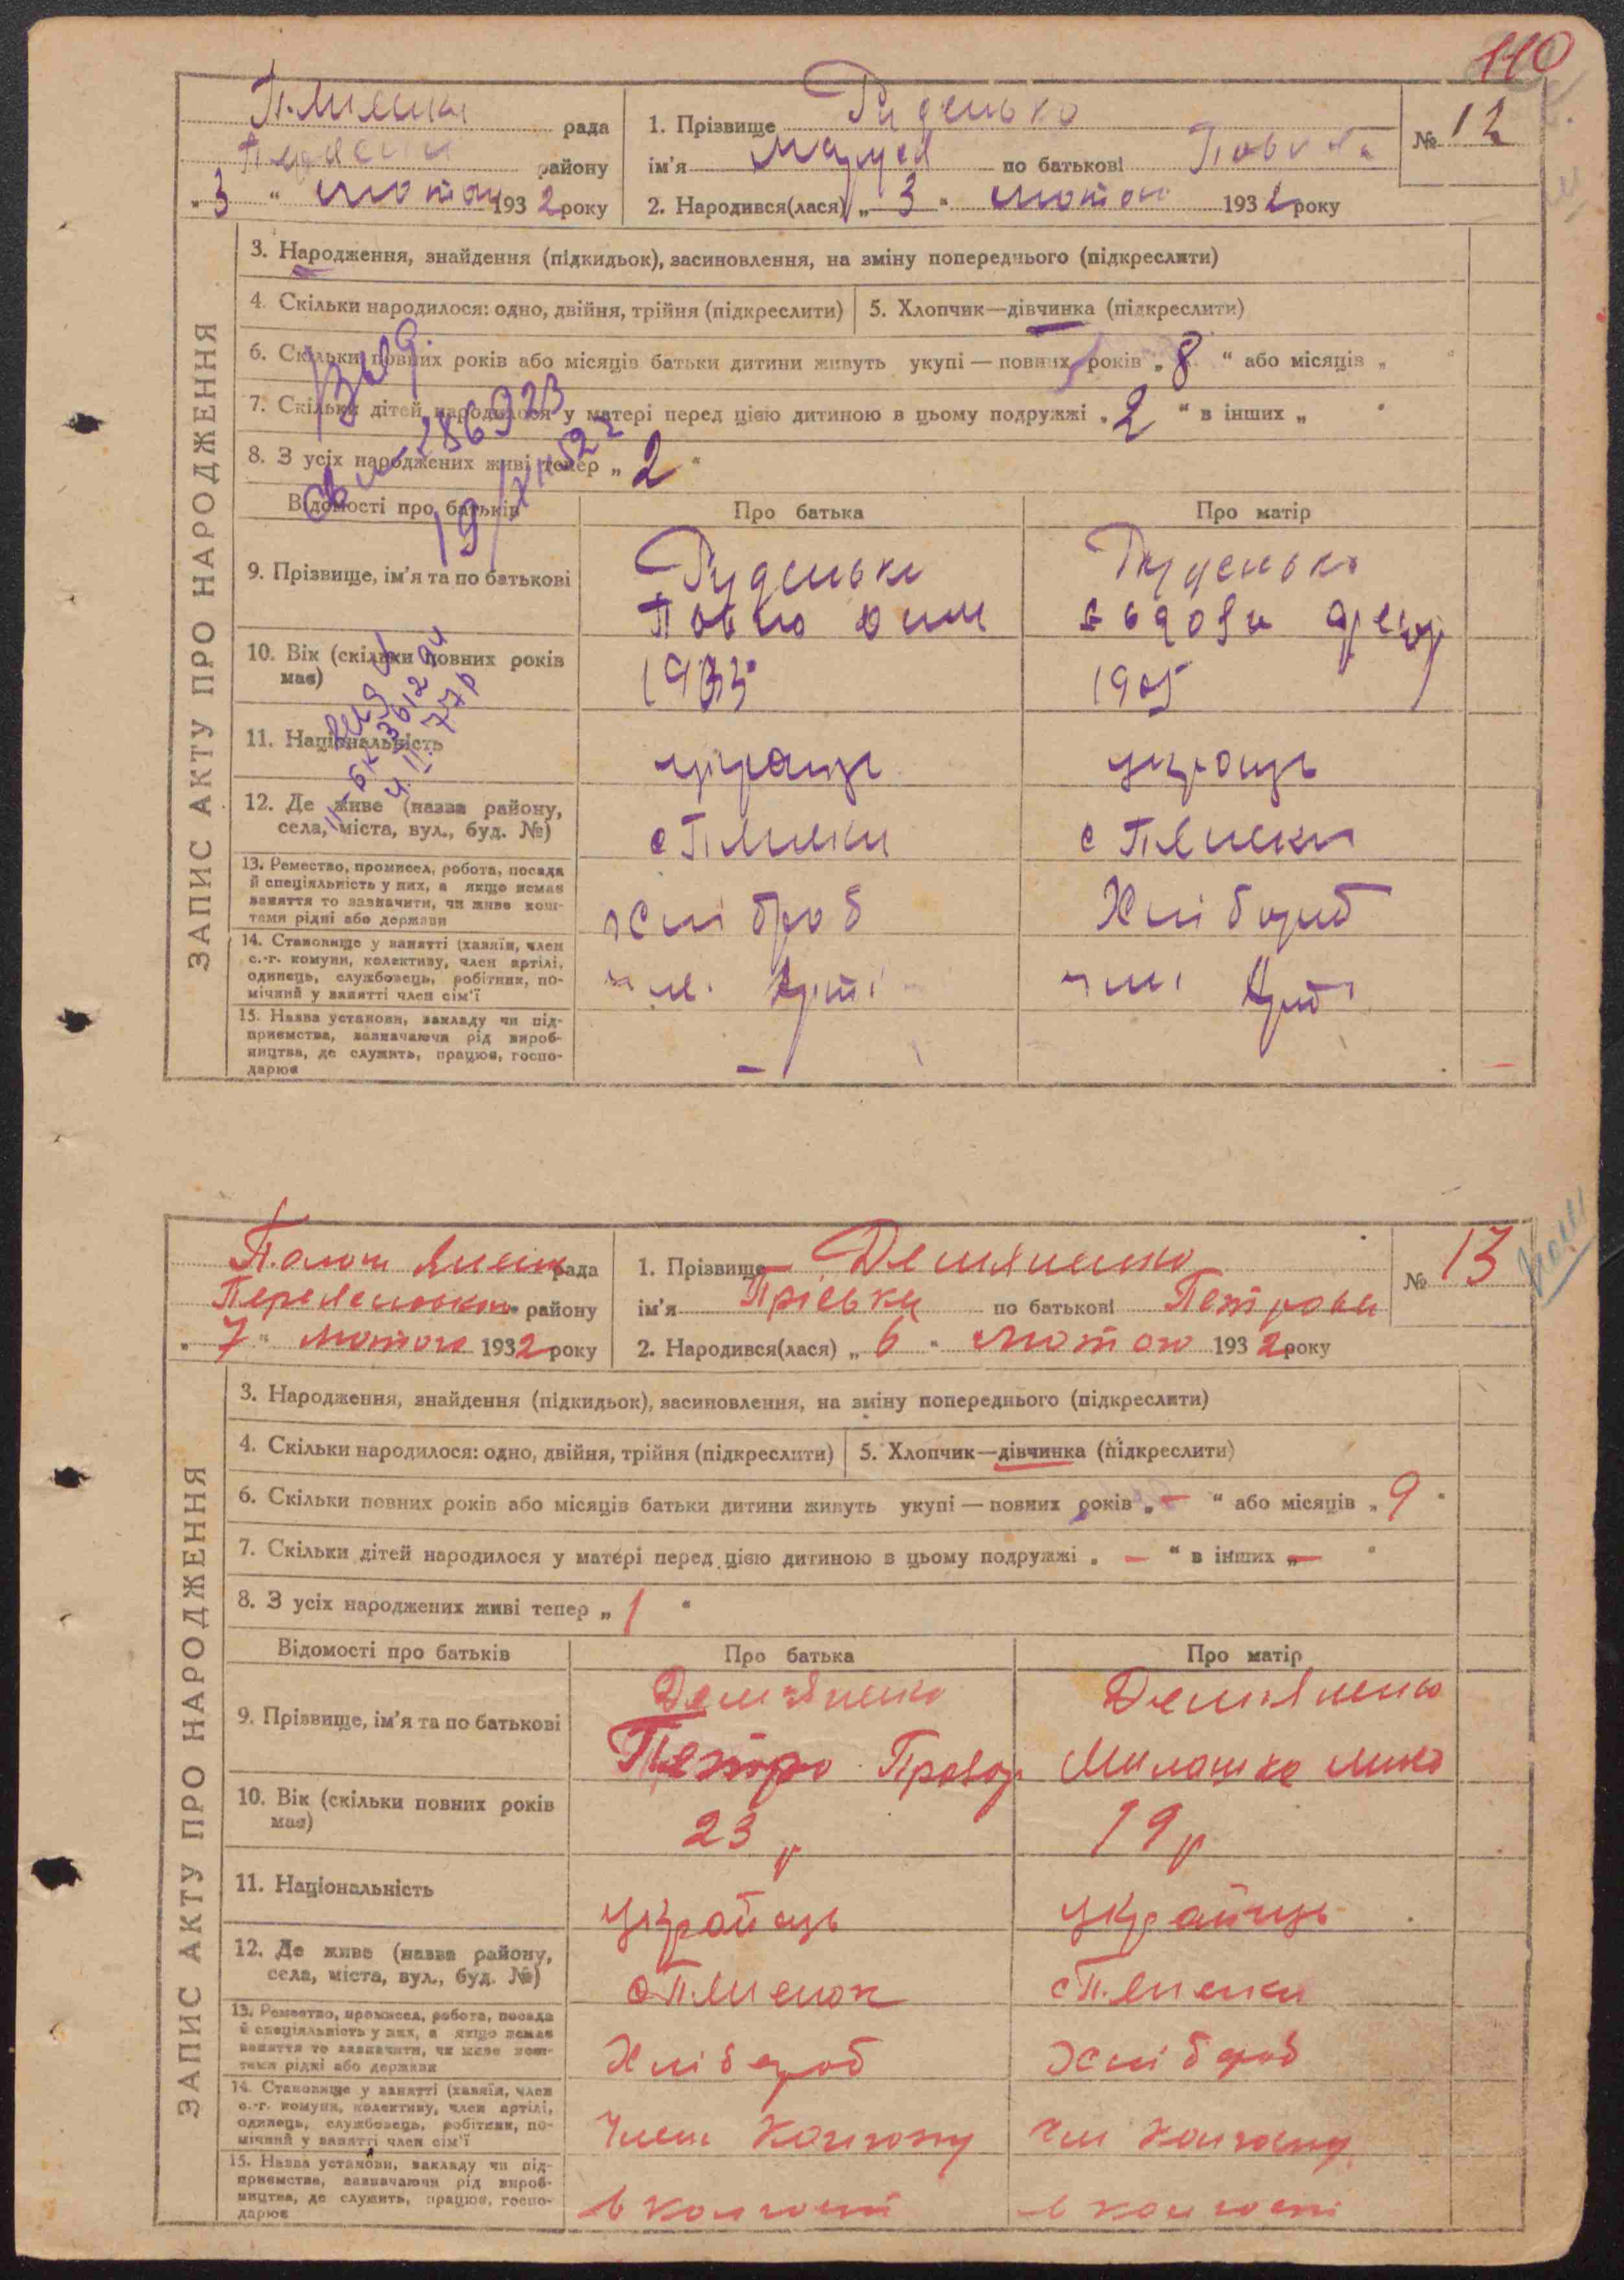 110
рада
району
" 3 " лютого 1932 року
1. Прізвище Руденько
ім'я Маруся по батькові Повлова
2. Народився(лася) „ 3 " лютого 1932 року
№ 12
ЗАПИС АКТУ ПРО НАРОДЖЕННЯ
3. Народження, знайдення (підкидьок), засиновлення, на зміну попереднього (підкреслити)
4. Скільки народилося: одно, двійня, трійня (підкреслити) 5. Хлопчик—дівчинка (підкреслити)
6. Скільки повних років або місяців батьки дитини живуть укупі — повних років „ 8 “ або місяців „ “
7. Скільки дітей народилося у матері перед цією дитиною в цьому подружжі „ 2 “ в інших „ “
8. З усіх народжених живі тепер „ 2 “
Відомості про батьків Про батька Про матір
9. Прізвище, ім'я та по батькові
Руденько Руденько
10. Вік (скільки повних років
має)
1905
11. Національність
12. Де живе (назва району,
села, міста, вул., буд. №)
13. Ремество, промисел, робота, посада
й спеціяльність у них, а якщо немає
заняття то зазначити, чи живе кош-
тами рідні або держави
Хлібороб Хлібороб
14. Становище у занятті (хазяїн, член
с.-г. комуни, колективу, член артілі,
одинець, службовець, робітник, по-
мічний у занятті член сім'ї
чл. Арті чл. Арті
15. Назва установи, закладу чи під-
приємства, зазначаючи рід вироб-
ництва, де служить, працює, госпо-
дарює
—
рада
району
" 7 " лютого 1932 року
1. Прізвище Демяненко
ім'я Пріська по батькові Петрова
2. Народився(лася) „ 6 " лютого 1932 року
№ 13
ЗАПИС АКТУ ПРО НАРОДЖЕННЯ
3. Народження, знайдення (підкидьок), засиновлення, на зміну попереднього (підкреслити)
4. Скільки народилося: одно, двійня, трійня (підкреслити) 5. Хлопчик—дівчинка (підкреслити)
6. Скільки повних років або місяців батьки дитини живуть укупі — повних років „ — “ або місяців „ 9 “
7. Скільки дітей народилося у матері перед цією дитиною в цьому подружжі „ — “ в інших „ — “
8. З усіх народжених живі тепер „ 1 “
Відомості про батьків Про батька Про матір
9. Прізвище, ім'я та по батькові
Демяненко Демяненко
Петро Милашка
10. Вік (скільки повних років
має)
23 р 19 р
11. Національність
Українць Українць
12. Де живе (назва району,
села, міста, вул., буд. №)
13. Ремество, промисел, робота, посада
й спеціяльність у них, а якщо немає
заняття то зазначити, чи живе кош-
тами рідні або держави
Хлібороб Хлібороб
14. Становище у занятті (хазяїн, член
с.-г. комуни, колективу, член артілі,
одинець, службовець, робітник, по-
мічний у занятті член сім'ї
Член Колгоспу Чл Колгоспу
15. Назва установи, закладу чи під-
приємства, зазначаючи рід вироб-
ництва, де служить, працює, госпо-
дарює
в колгоспі в колгоспі